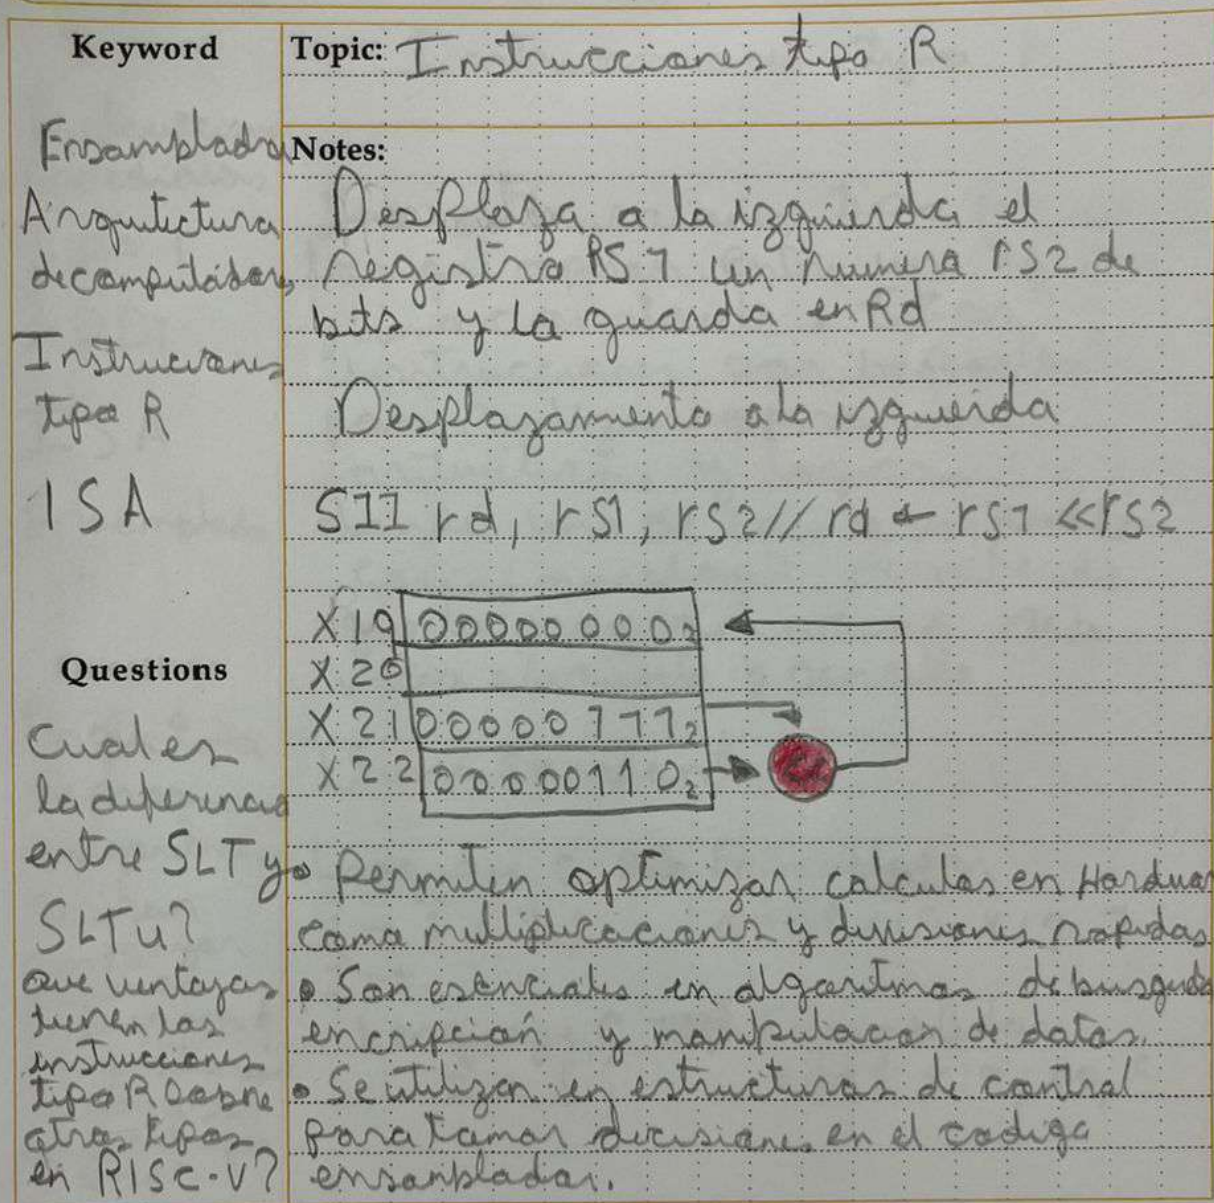 Keyword
Topic: Instrucciones tipo R
Ensamblador
Arquitectura
de computadores
Instrucciones
tipo R
ISA
Questions
Cual es
la diferencia
entre SLT y
SLTu?
que ventajas
tienen las
instrucciones
tipo R sobre
otros tipos
en RISC-V?
Notes:
Desplaza a la izquierda el
registro RS1 un numero rS2 de
bits y lo guarda en Rd
Desplazamiento a la izquierda
Sll rd, rS1, rS2 // rd ← rS1 << rS2
X19 00000000₂
X20
X21 00000111₂
X22 00000110₂
<<
• Permiten optimizar calculos en Hardwar
como multiplicaciones y divisiones rapidas
• Son esenciales en algoritmos de busqueda
encripción y manipulacion de datos.
• Se utilizan en estructuras de control
para tomar decisiones en el codigo
ensanblador.